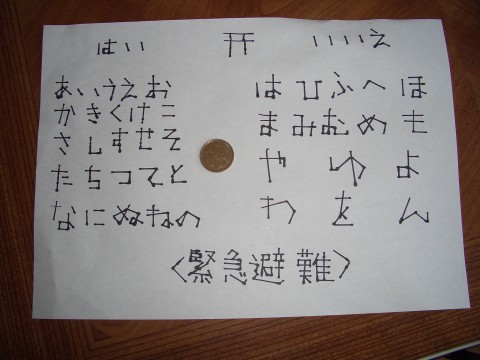 はい いいえ
あいうえお
かきくけこ
さしすせそ
たちつてと
なにぬねの
はひふへほ
まみむめも
や ゆ よ
わ を ん
〈緊急避難〉